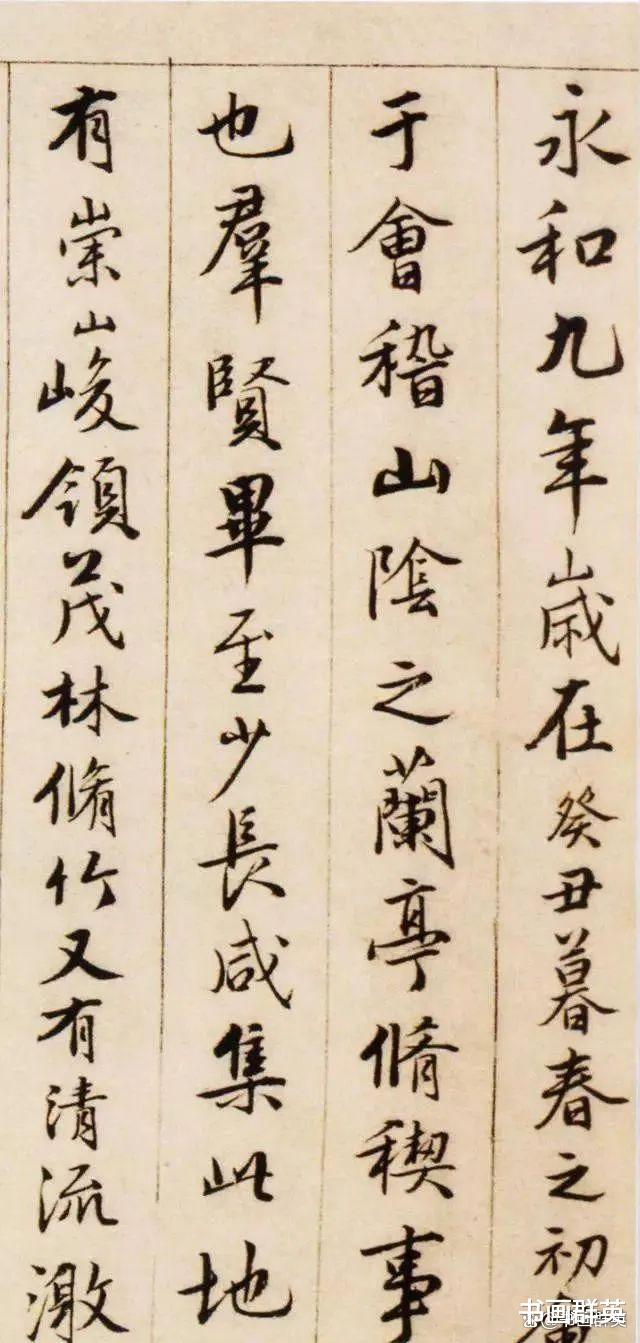 永和九年歲在癸丑暮春之初
于會稽山陰之蘭亭脩稧事
也羣賢畢至少長咸集此地
有崇山峻領茂林脩竹又有清流激
书画群英